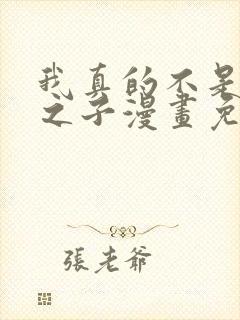 我真的不是
之子漫畫免
張老爺